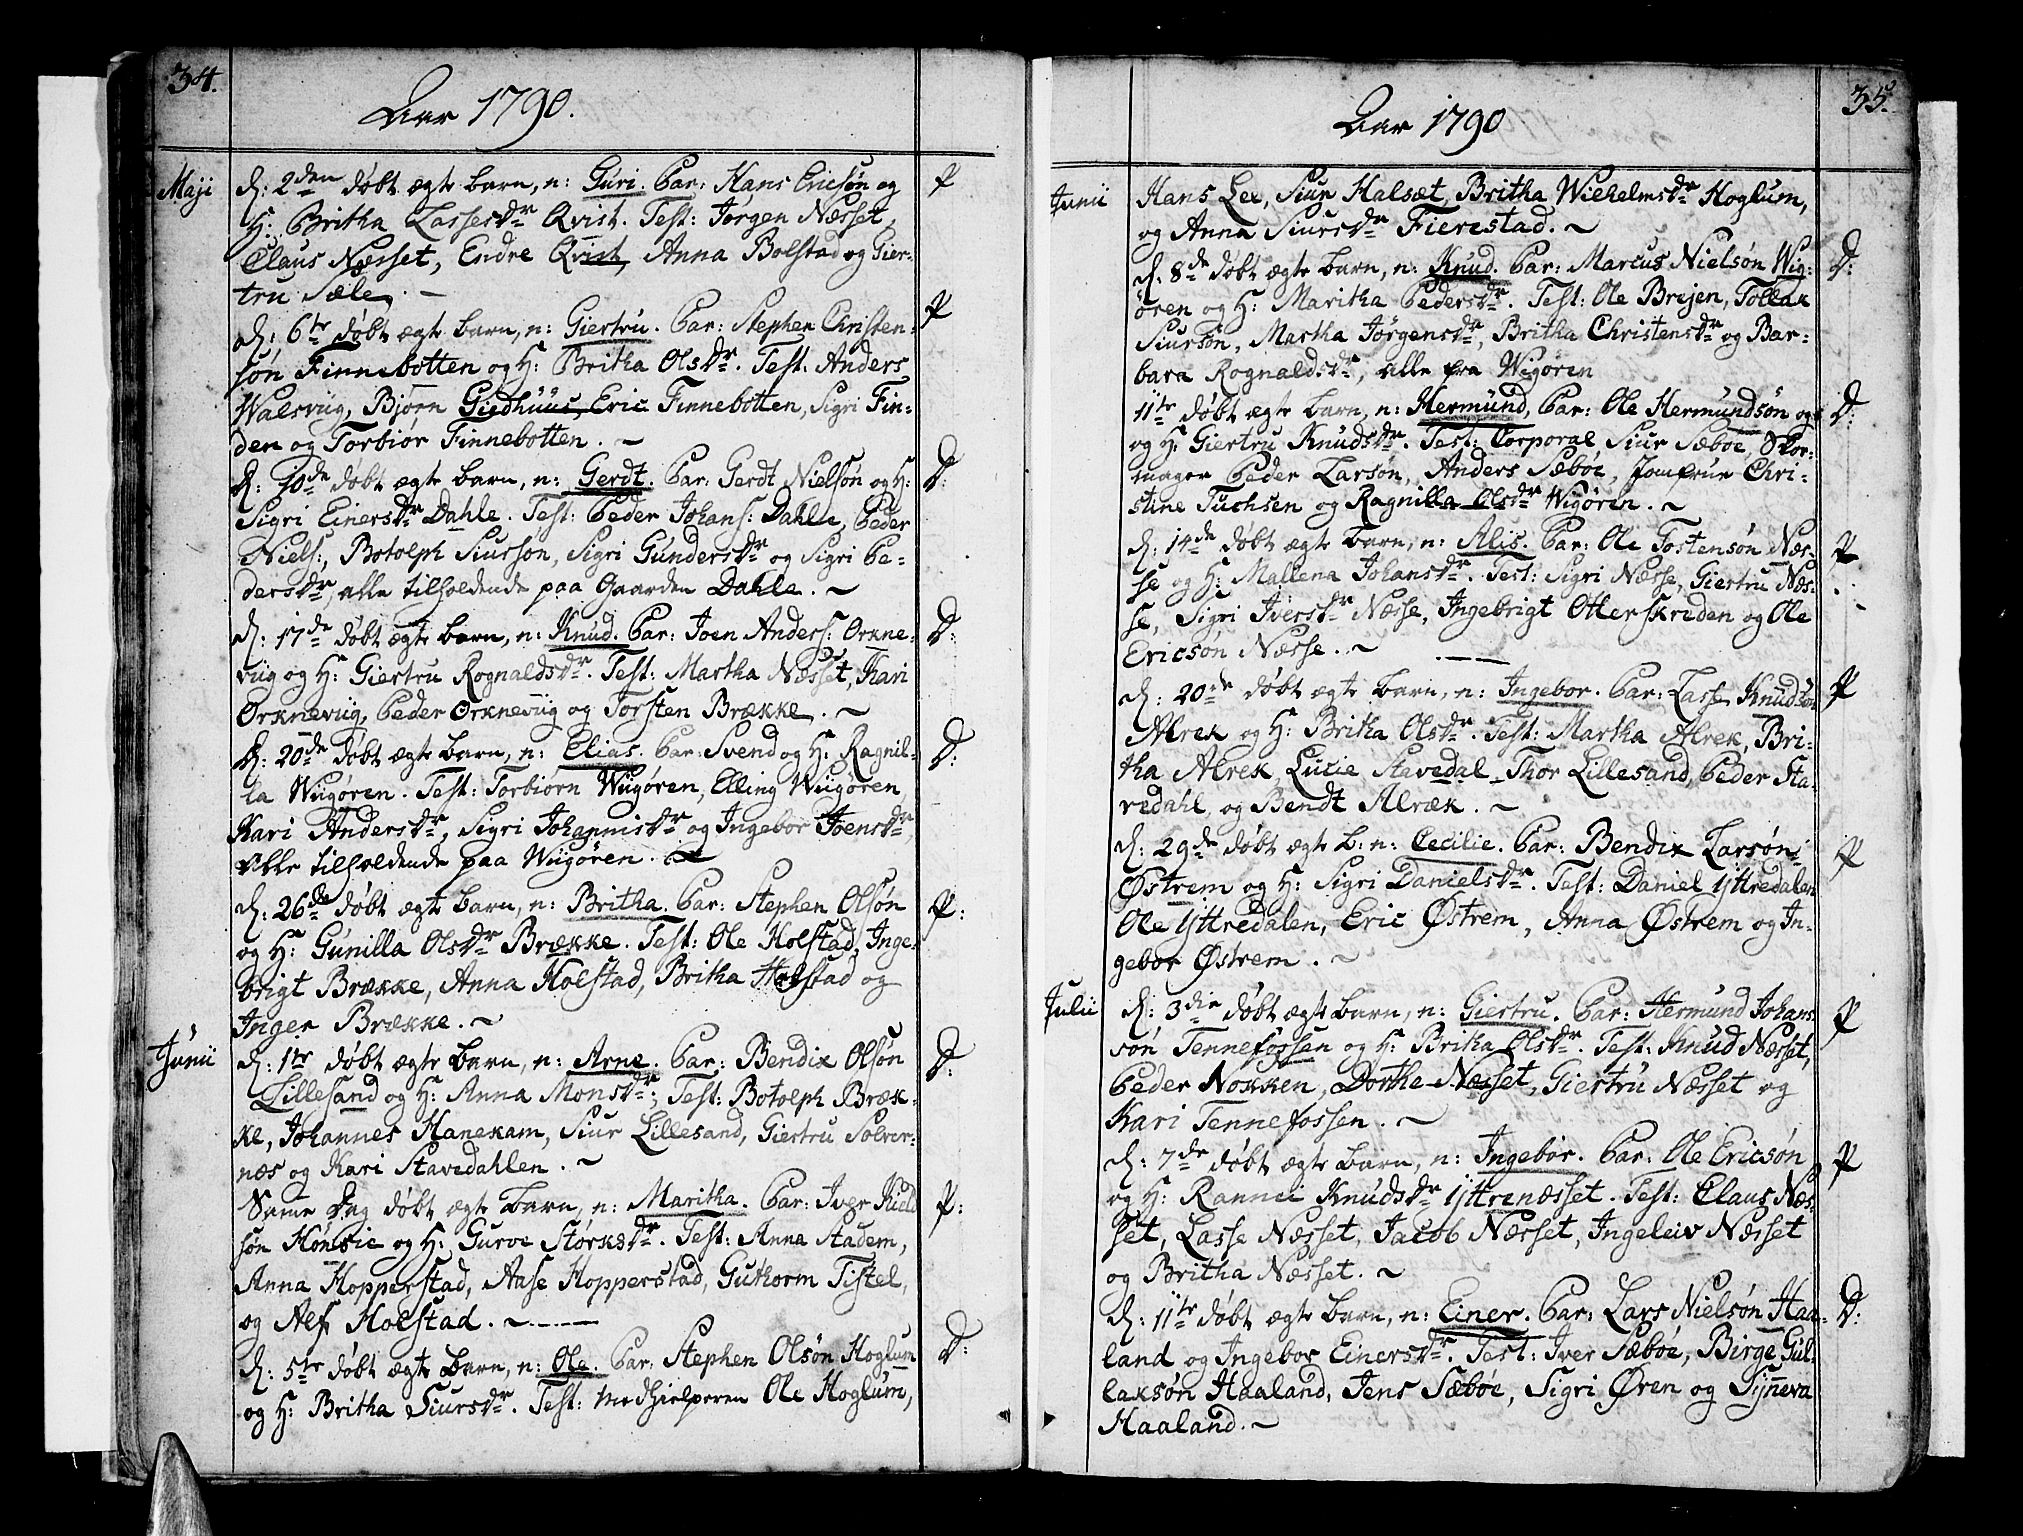 34.
Aar 1790.
Maji
d: 2den døbt ægte barn, n: Guri. Par: Hans Ericsøn og P
H: Britha Lassesdr Qvist. Test: Jørgen Næsset,
Claus Næsset, Endre Qvist, Anna Bolstad og Gier-
tru Sæle. -
d: 6te døbt ægte barn, n: Giertru. Par: Stephen Christen- P
søn Finnebotten og H: Britha Olsdr. Test: Anders
Walsvig, Bjørn Giedhuus, Eric Finnebotten, Sigri Fin-
den og Torbiør Finnebotten. ~
d: 10de døbt ægte barn, n: Gerdt. Par: Gerdt Nielsøn og H: D:
Sigri Einersdr Dahle. Test: Peder Johans: Dahle, Peder
Niels:, Botolph Siursson, Sigri Gundersdr og Sigri Pe-
dersdr, alle tilholdende paa Gaarden Dahle. ~
d: 17de døbt ægte barn, n: Knud. Par: Joen Anders: Orkne- D:
viig og Hr Giertru Rognaldsdr. Test: Martha Næsset, Kari
Orkneviig, Peder Orkneviig og Torsten Brække. ~
d: 20de døbt ægte barn, n: Elias. Par: Svend og Hr Ragnil- D:
la Wiigøren. Test: Torbiørn Wiigøren, Elling Wiigøren,
Kari Andersdr, Sigri Johannisdr og Ingebor Joensdr,
alle tilholdende paa Wiigøren. ~
d: 26de døbt ægte barn, n: Britha. Par: Stephen Olsøn P:
og Hr Gunilla Olsdr Brække. Test: Ole Holstad, Inge-
brigt Brække, Anna Holstad, Britha Holstad og
Inger Brække. ~
Junii
d: 1te døbt ægte barn, n: Arne. Par: Bendix Olsøn D:
Lillesand og H: Anna Monsdr; Test: Botolph Bræk-
ke, Johannes Hanekam, Siur Lillesand, Giertru Solver-
næs og Kari Stavedahlen. ~
Samme Dag døbt ægte barn, n: Maritha. Par: Iver Kield P:
søn Hønsie og H: Gurve Størksdr. Test: Anna Stadem,
Anna Hopperstad, Aase Hopperstad, Guthorm Tistel,
og Alf Holstad. ~
d: 5te døbt ægte barn, n: Ole. Par: Stephen Olsøn Hoglum D:
og H: Britha Siursdr. Test: Medhielperen Ole Hoglum,
35.
Aar 1790
Junii
Hans Lee, Siur Halsæt, Britha Wilhelmsdr Hoglum,
og Anna Siursdr Fierestad. ~
d: 8de døbt ægte barn, n: Knud. Par: Marcus Nielsøn Wig- D:
øren og H: Maritha Pedersdr. Test: Ole Brejen, Tollak
Siursøn, Martha Jørgensdr, Britha Christensdr og Bar-
bara Rognaldsdr, alle fra Wigøren
11te døbt ægte barn, n: Hermund, Par: Ole Hermundsøn og D:
og Hr Giertru Knudsdr. Test: Corporal Siur Sæboe, Skor-
mager Peder Larsøn, Anders Sæbøe, Jomfrue Chri-
stine Tuchsen og Ragnilla Olsdr Wigøren. ~
d: 14de døbt ægte barn, n: Alis. Par: Ole Tostensøn Næs- P
se og H: Mallena Johansdr. Test: Sigri Næsse, Giertru Næs-
se, Sigri Iversdr Næsse, Ingebrigt Otterskreden og Ole
Ericsøn Næsse. ~
d: 20de døbt ægte barn, n: Ingebor. Par: Lasse Knudsøn P
Alrek og Hr Britha Olsdr. Test: Martha Alrek, Bri-
tha Alrek, Lucie Stavedal, Thor Lillesand, Peder Sta-
vedahl og Bendt Alræk. ~
d: 29de døbt ægte B: n: Cecilie. Par: Bendix Larsøn P
Østrem og H: Sigri Danielsdr. Test: Daniel Yttredalen
Ole Yttredalen, Eric Østrem, Anna Østrem og In-
gebor Østrem. ~
Julii
d: 3die døbt ægte barn, n: Giertru. Par: Hermund Johans P
søn Tennefossen og H: Britha Olsdr. Test: Knud Næsset,
Peder Nokken, Dorthe Næsset, Giertru Næsset og
Kari Tennefossen. ~
d: 7de døbt ægte barn, n: Ingebor. Par: Ole Ericsøn P
og H: Rannei Knudsdr Yttrenæsset. Test: Claus Næs-
set, Lasse Næsset, Jacob Næsset, Ingeleiv Næsset
og Britha Næsset. ~
d: 11te døbt ægte barn, n: Einer. Par: Lars Nielsøn Haa- D:
land og Ingebor Einersdr. Test: Iver Sæbøe, Birge Gul-
laksøn Haaland, Jens Sæbøe, Sigri Øren og Synneva
Haaland. ~